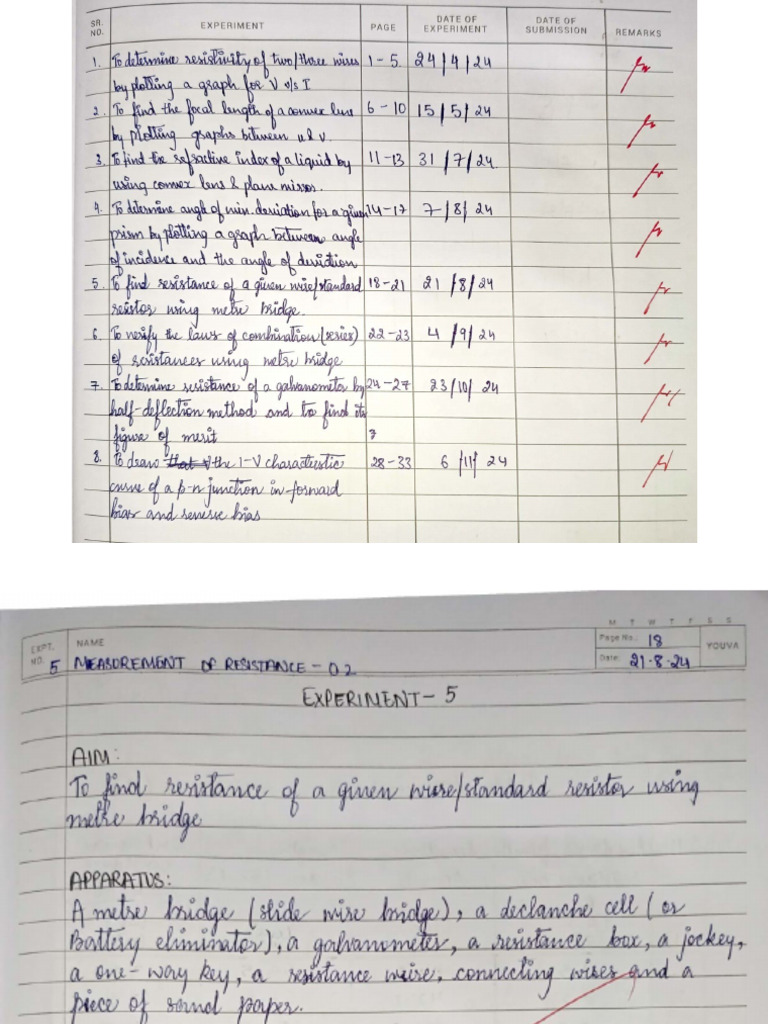 SR. NO. EXPERIMENT PAGE DATE OF EXPERIMENT DATE OF SUBMISSION REMARKS
1. To determine resistivity of two/three wires 1-5 24/4/24
by plotting a graph for V v/s I
2. To find the focal length of a convex lens 6-10 15/5/24
by plotting graphs between u & v.
3. To find the refractive index of a liquid by 11-13 31/7/24
using convex lens & plane mirror.
4. To determine angle of min. deviation for a given 14-17 7/8/24
prism by plotting a graph between angle
of incidence and the angle of deviation
5. To find resistance of a given wire/standard 18-21 21/8/24
resistor using metre bridge.
6. To verify the laws of combination (series) 22-23 4/9/24
of resistances using metre bridge
7. To determine resistance of a galvanometer by 24-27 23/10/24
half-deflection method and to find its
figure of merit
8. To draw the I-V characteristic 28-33 6/11/24
curve of a p-n junction in forward
bias and reverse bias
M T W T F S S
EXPT. NO. 5 NAME MEASUREMENT OF RESISTANCE-02 Page No.: 18 Date: 21-8-24 YOUVA
EXPERIMENT-5
AIM:
To find resistance of a given wire/standard resistor using
metre bridge
APPARATUS:
A metre bridge (slide wire bridge), a declanche cell (or
Battery eliminator), a galvanometer, a resistance box, a jockey,
a one-way key, a resistance wire, connecting wires and a
piece of sand paper.